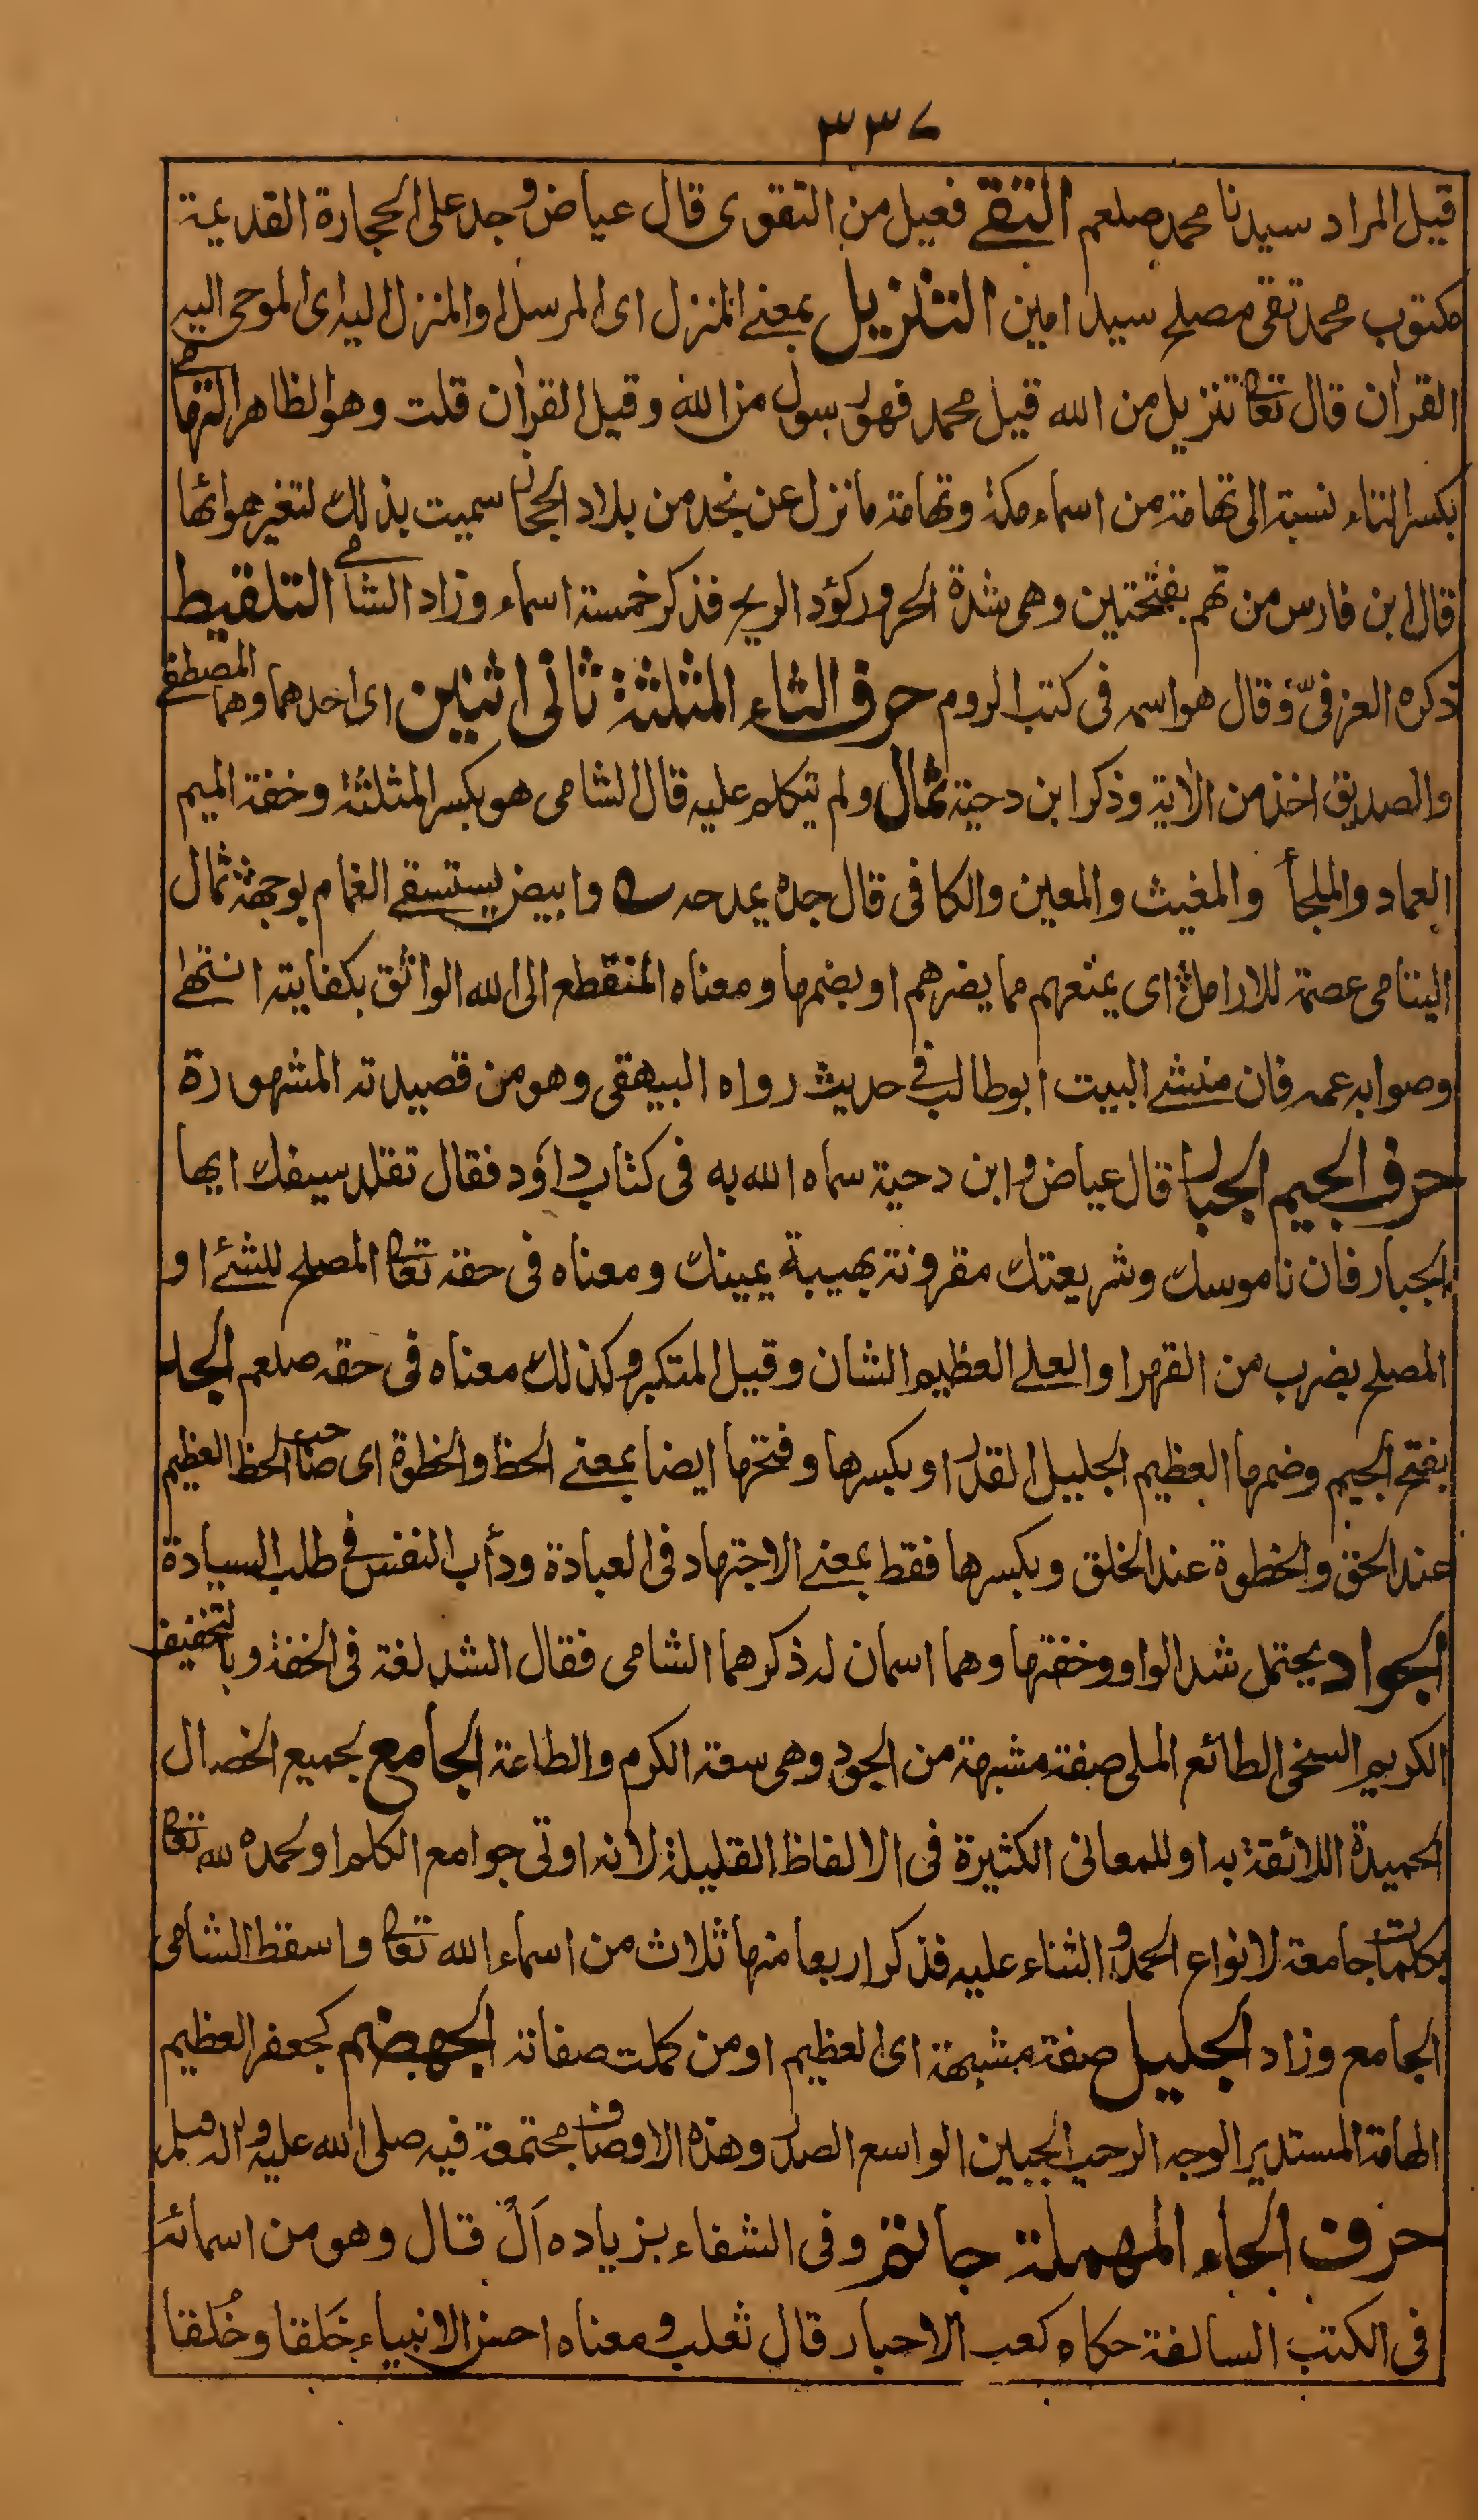 ٣٣٧
قيل المراد سيدنا محمد صلعم التقے فعيل من التقوى قال عياض وجد على الحجارة القديمة
مكتوب محمد تقى مصلح سيد امين التنزيل بمعنے المنزل اى المرسل او المنزل اليه اى الموحى اليه
القرآن قال تعالى تنزيل من الله قيل محمد فهو رسول من الله وقيل القرآن قلت وهو الظاهر التهامے
بكسر التاء نسبة الى تهامة من اسماء مكة وتهامة ما نزل عن نجد من بلاد الحجاز سميت بذلك لتغير هوائها
قال ابن فارس من تهم بفتحتين وهى شدة الحر وركؤد الريح فذكر خمسة اسماء وزاد الشامے التلقيط
ذكره العزفىّ وقال هو اسمه فى كتب الروم حرف الثاء المثلثة ثانى اثنين اى احدهما وهما المصطفے
والصديق اخذ من الآية وذكر ابن دحية ثمال ولم يتكلم عليه قال الشامى هو بكسر المثلثة وخفة الميم
العماد والملجأ والمغيث والمعين والكافى قال جده يمدحه وابيض يستسقے الغمام بوجهه ثمال
اليتامى عصمة للارامل اى يمنعهم مما يضرهم او بضمها ومعناه المنقطع الى الله الواثق بكفايته انتهٰے
وصوابه عمه فان منشئے البيت ابوطالب فے حديث رواه البيهقى وهو من قصيدته المشهورة
حرف الجيم الجبار قال عياض وابن دحية سماه الله به فى كتاب داؤد فقال تقلد سيفك ايها
الجبار فان ناموسك وشريعتك مقرونة بهيبة يمينك ومعناه فى حقه تعالى المصلح للشئے او
المصلح بضرب من القهر او العلے العظيم الشان وقيل المتكبر وكذلك معناه فى حقه صلعم الجد
بفتح الجيم وضمها العظيم الجليل القدر او بكسرها وفتحها ايضا بمعنے الحظ والخطوة اى صاحب الحظ العظيم
عند الحق والخطوة عند الخلق وبكسرها فقط بمعنے الاجتهاد فى العبادة ودأب النفس فے طلب السيادة
الجواد يحتمل شد الواو وخفتها وهما اسمان له ذكرهما الشامى فقال الشد لغة فى الخفة وبالتخفيف
الكريم السخى الطائع الملى صفة مشبهة من الجود وهى سعة الكرم والطاعة الجامع لجميع الخصال
الحميدة اللائقة به او للمعانى الكثيرة فى الالفاظ القليلة لانه اوتى جوامع الكلم او لحمده لله تعالى
بكلمات جامعة لانواع الحمد والثناء عليه فذكر اربعا منها ثلاث من اسماء الله تعالى واسقط الشامى
الجامع وزاد الجليل صفة مشبهة اى العظيم او من كملت صفاته الجهضم كجعفر العظيم
الهامة المستدير الوجه الرحب الجبين الواسع الصدر وهذه الاوصاف مجتمعة فيه صلى الله عليه وآله وسلم
حرف الحاء المهملة حاتم وفى الشفاء بزياده اَلْ قال وهو من اسمائه
فى الكتب السالفة حكاه كعب الاحبار قال ثعلب ومعناه احسن الانبياء خَلقا وخُلقا